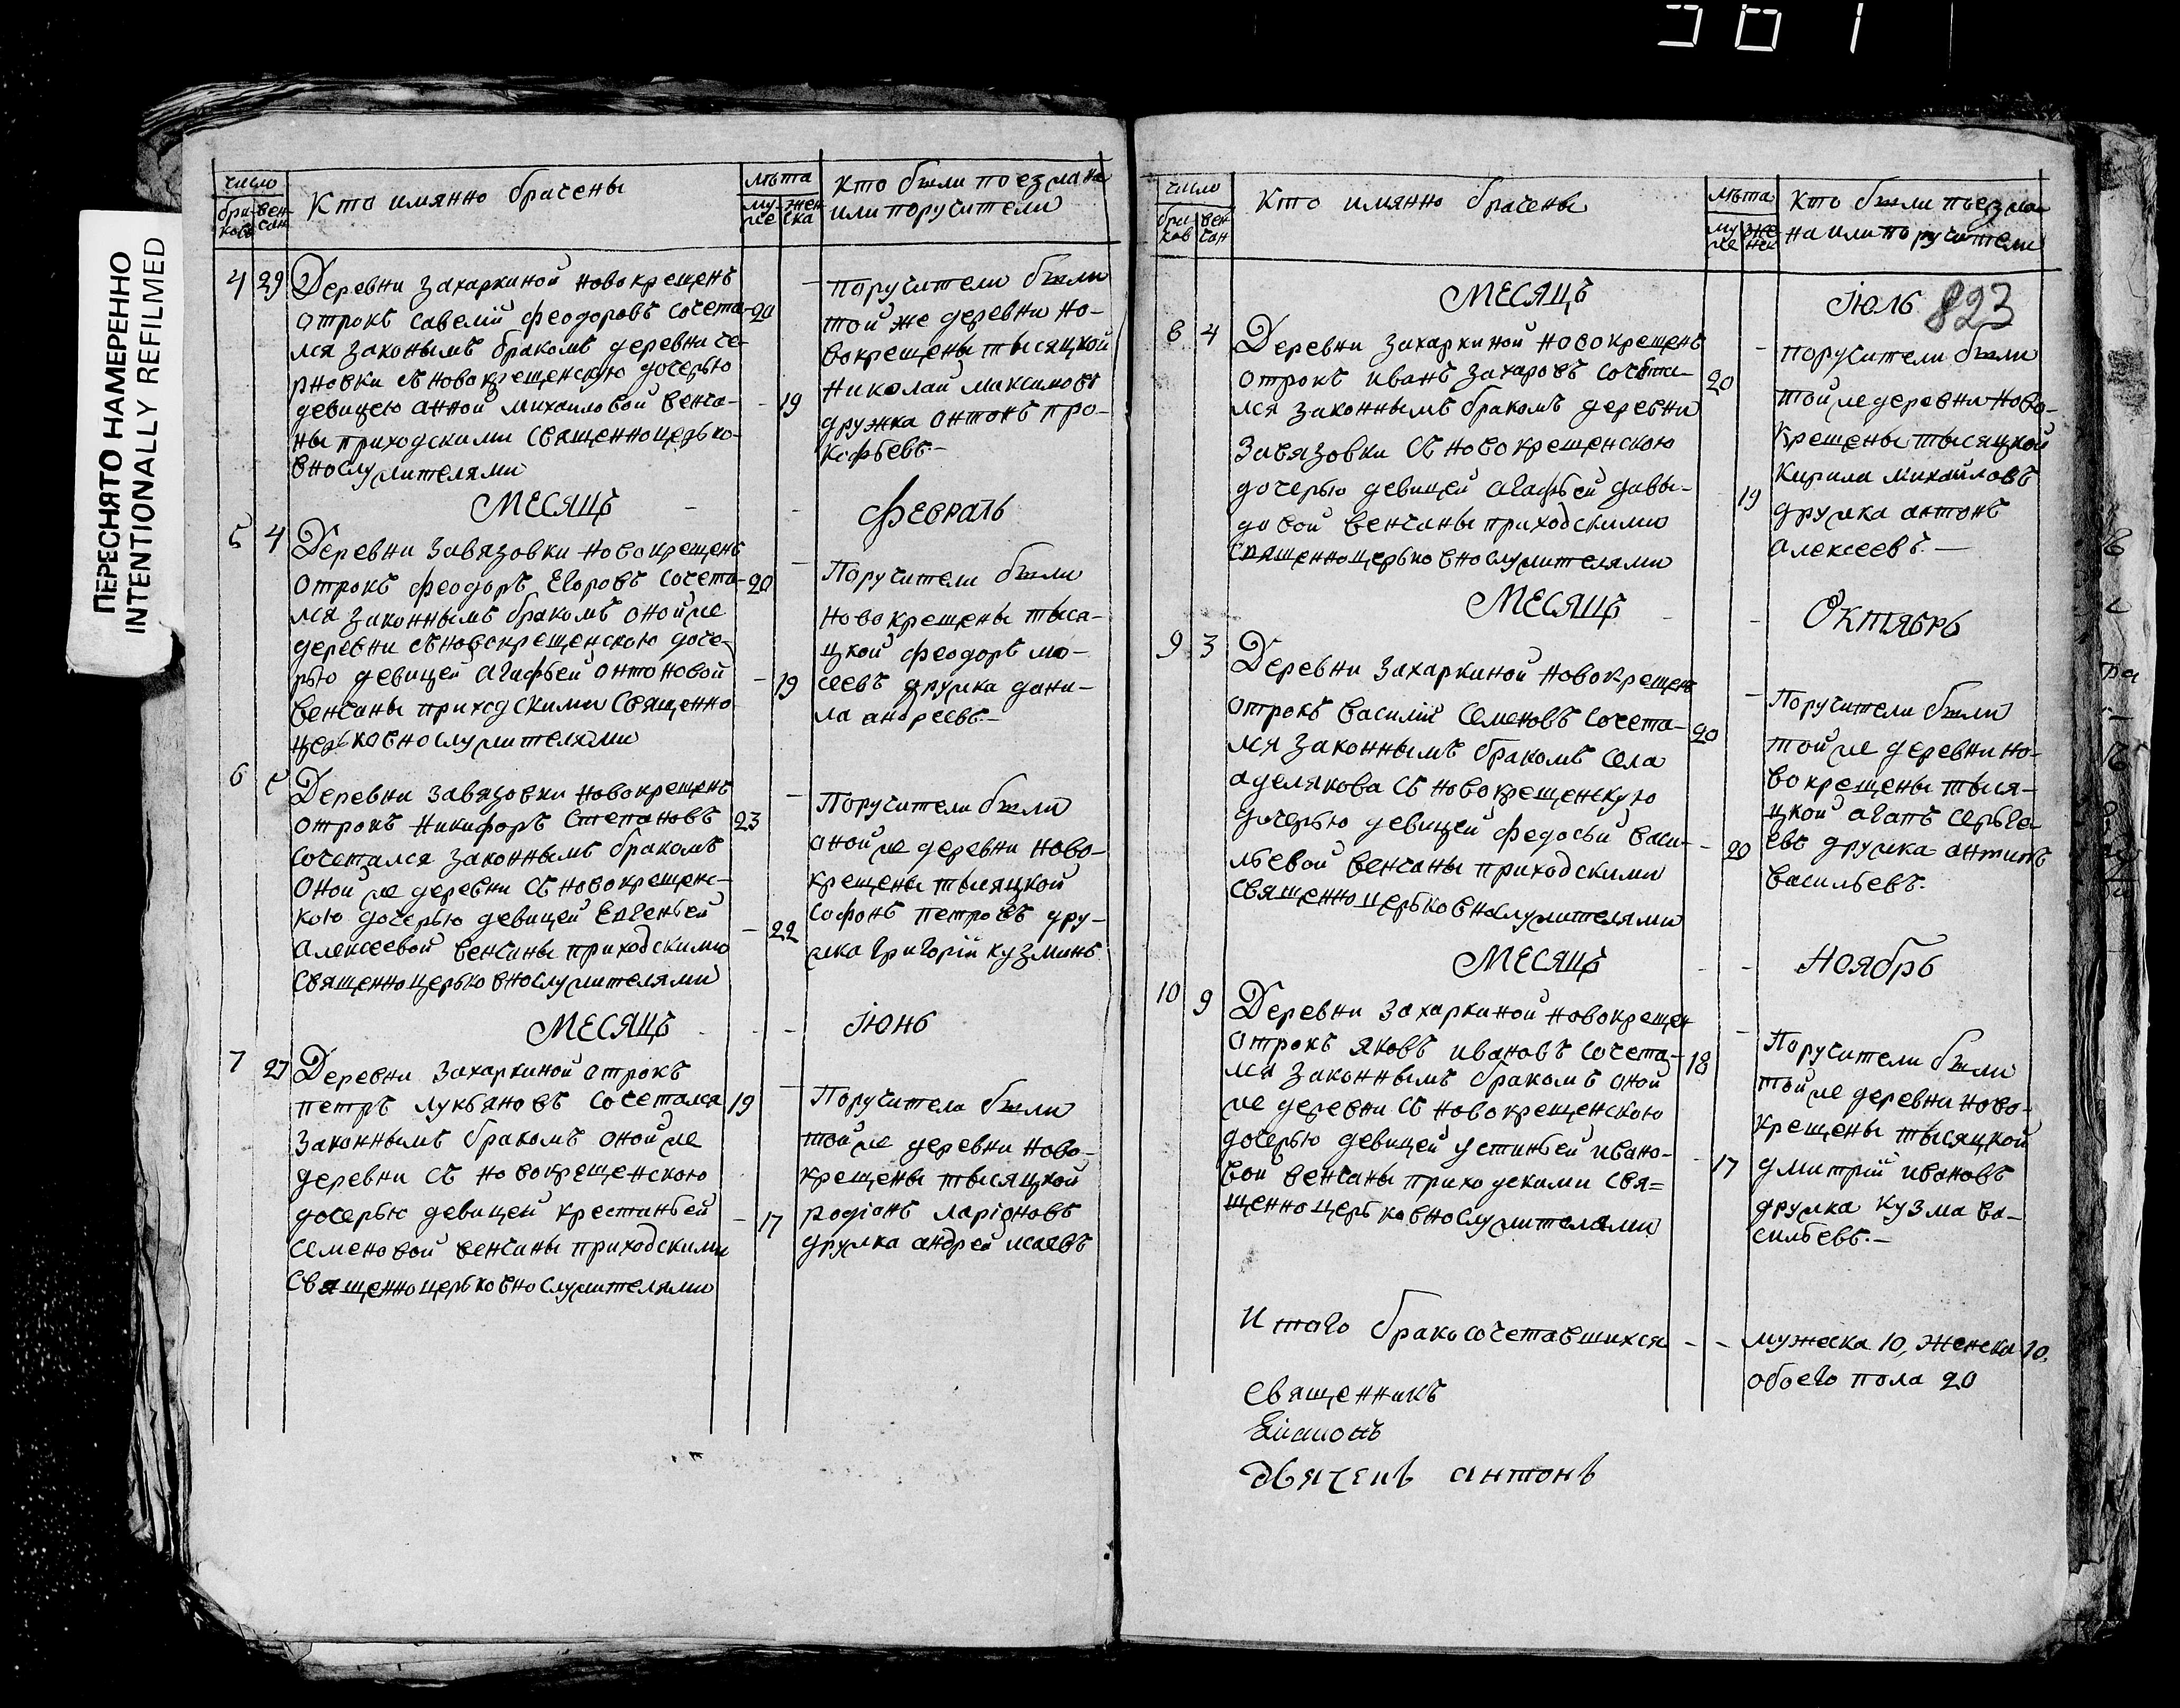 ПЕРЕСНЯТО НАМЕРЕННО
INTENTIONALLY REFILMED
число
бра-ковъ
вен-чан
Кто имянно брачены
лѣта
му-же
жен-ска
кто были поезжана
или поручители
4 29 Деревни Захаркиной новокрещенъ
отрокъ Савелій Феодоровъ сочета- 20
лся законымъ бракомъ деревни Че-
рновки съ новокрещенскую дочерью
девицею Анной Михаиловой венча- 19
ны приходскими священноцерько-
внослужителями
Поручители были
той же деревни но-
вокрещены тысяцкой
Николай Максимовъ
дружка Антонъ Про-
кофьевъ.
МЕСЯЦЪ Февраль
5 4 Деревни Завязовки новокрещенъ
отрокъ Феодоръ Егоровъ сочета- 20
лся законнымъ бракомъ оной же
деревни съ новокрещенскою доче-
рью девицей Агафьей Антоновой 19
венчаны приходскими священно
церьковнослужителями
Поручители были
новокрещены тыся-
цкой Феодоръ Мо-
сеевъ дружка Дани-
ла Андреевъ.
6 5 Деревни Завязовки новокрещенъ
отрокъ Никифоръ Степановъ 23
сочетался законнымъ бракомъ
оной же деревни съ новокрещенс-
кою дочерью девицей Евгеньей
Алексеевой венчаны приходскими 22
священноцерьковнослужителями
Поручители были
оной же деревни ново-
крещены тысяцкой
Софонъ Петровъ дру-
жка Григорій Кузминъ
МЕСЯЦЪ Іюнь
7 27 Деревни Захаркиной отрокъ
Петръ Лукьяновъ сочетался 19
законнымъ бракомъ оной же
деревни съ новокрещенскою
дочерью девицей Крестиньей 17
Семеновой венчаны приходскими
священноцерьковнослужителями
Поручители были
той же деревни ново-
крещены тысяцкой
Родіонъ Ларіоновъ
дружка Андрей Исаевъ
число
бра-ков
вен-чан
Кто имянно брачены
лѣта
му-же
же-нск
Кто были поезжа
на или поручители
823
МЕСЯЦЪ Іюль
8 4 Деревни Захаркиной новокрещенъ
отрокъ Иванъ Захаровъ сочета- 20
лся законнымъ бракомъ деревни
Завязовки съ новокрещенскою
дочерью девицей Агафьей Давы- 19
довой венчаны приходскими
священноцерьковнослужителями
Поручители были
той же деревни ново-
крещены тысяцкой
Кирила Михайловъ
дружка Антонъ
Алексеевъ.
МЕСЯЦЪ Октябрь
9 3 Деревни Захаркиной новокрещенъ
отрокъ Василій Семеновъ сочета- 20
лся законнымъ бракомъ села
Аделякова съ новокрещенскую
дочерью девицей Федосьй Васи- 20
льевой венчаны приходскими
священноцерьковнослужителями
Поручители были
той же деревни но-
вокрещены тыся-
цкой Агапъ Серьге-
евъ дружка Антипъ
Васильевъ.
МЕСЯЦЪ Ноябрь
10 9 Деревни Захаркиной новокрещен
отрокъ Яковъ Ивановъ сочета- 18
лся законнымъ бракомъ оной
же деревни съ новокрещенскою
дочерью девицей Устиньей Ивано- 17
вой венчаны приходскими свя=
щенноцерьковнослужителями
Поручители были
той же деревни ново-
крещены тысяцкой
Дмитрій Ивановъ
дружка Кузма Ва-
сильевъ.
Итого бракосочетавшихся - - мужеска 10, женска 10,
обоего пола 20
священникъ
Антонъ